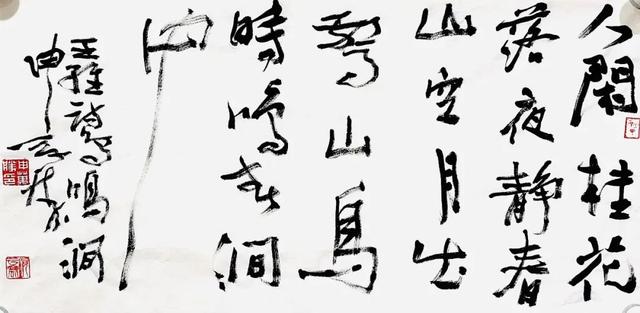 人閑桂花
落夜静春
山空月出
驚山鳥
時鳴春澗
中
王維詩鳥鳴澗
申